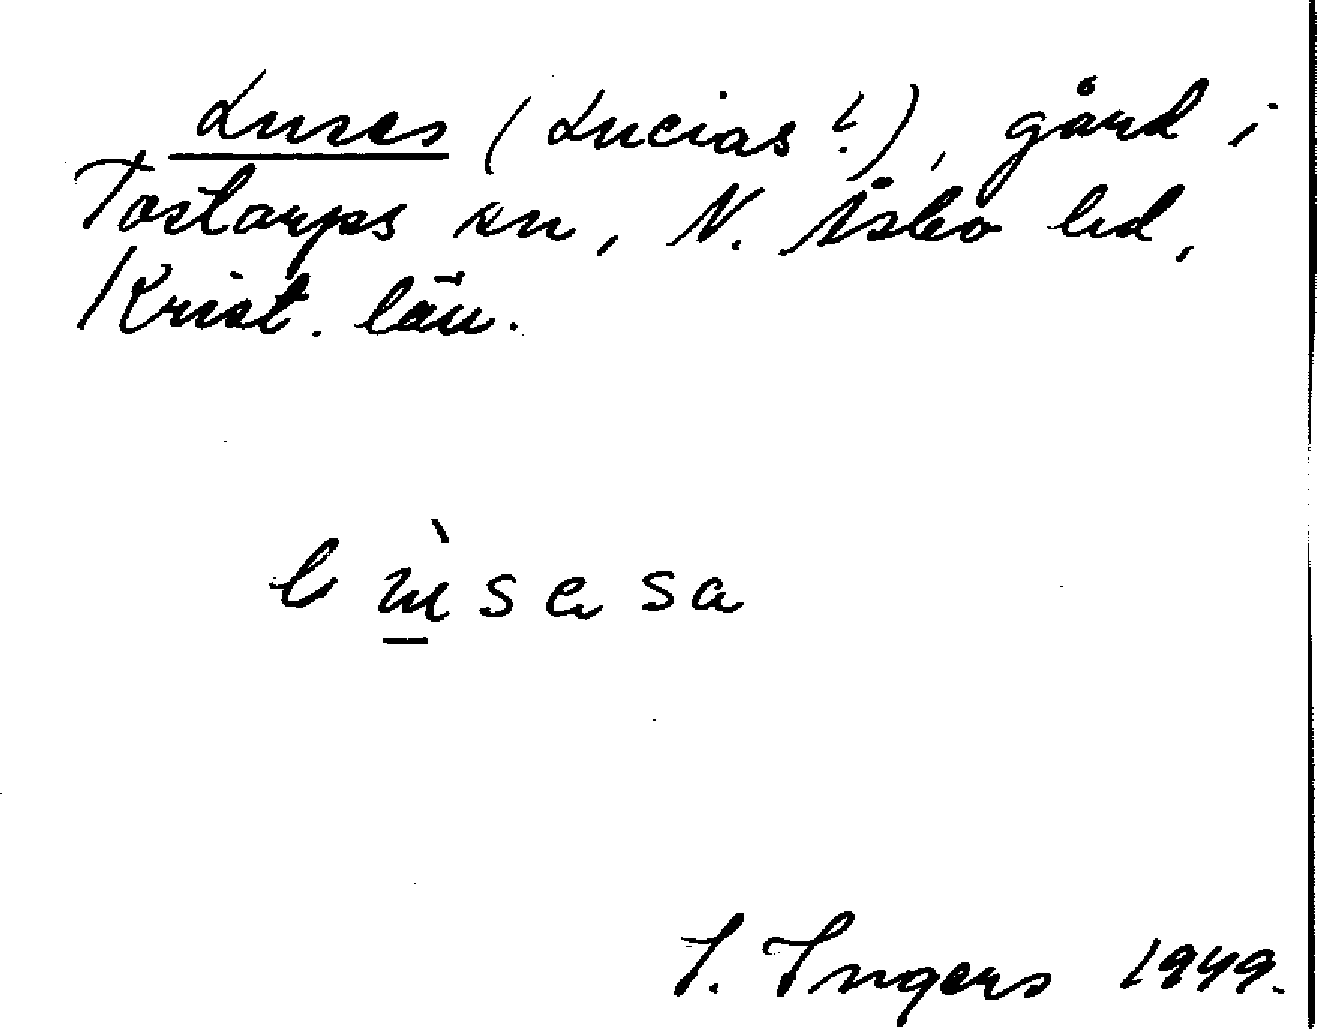 Luses (Lucias?), gård i
Tostarps sn, N. Åsbo hd,
Krist. län.
I. Ingers 1949.